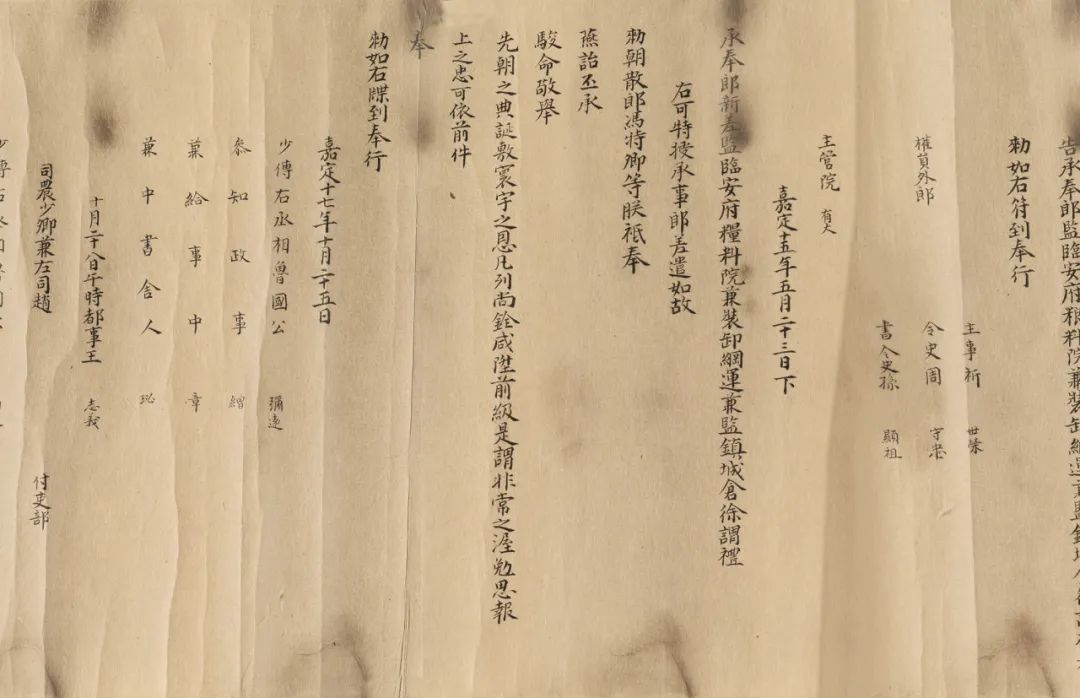 告承奉郎監臨安府粮料院兼裝卸綱運兼監鎮城倉徐謂禮
勑如右符到奉行
主事祈 世榮
權員外郎 令史周 守忠
書令史孫 顯祖
主管院 有人
嘉定十五年五月二十三日下
承奉郎新差監臨安府糧料院兼裝卸綱運兼監鎮城倉徐謂禮
右可特授承事郎差遣如故
勑朝散郎馮特卿等朕祗奉
燕詒丕承
駿命敬舉
先朝之典誕敷寰宇之恩凡列尚銓咸陞前級是謂非常之渥勉思報
上之忠可依前件
奉
勑如右牒到奉行
嘉定十七年十月二十五日
少傅右丞相魯國公 彌遠
叅知政事 繒
兼給事中 章
兼中書舍人 珌
十月二十八日午時都事王 志義
司農少卿兼左司趙 付吏部
少傅右丞相魯國公